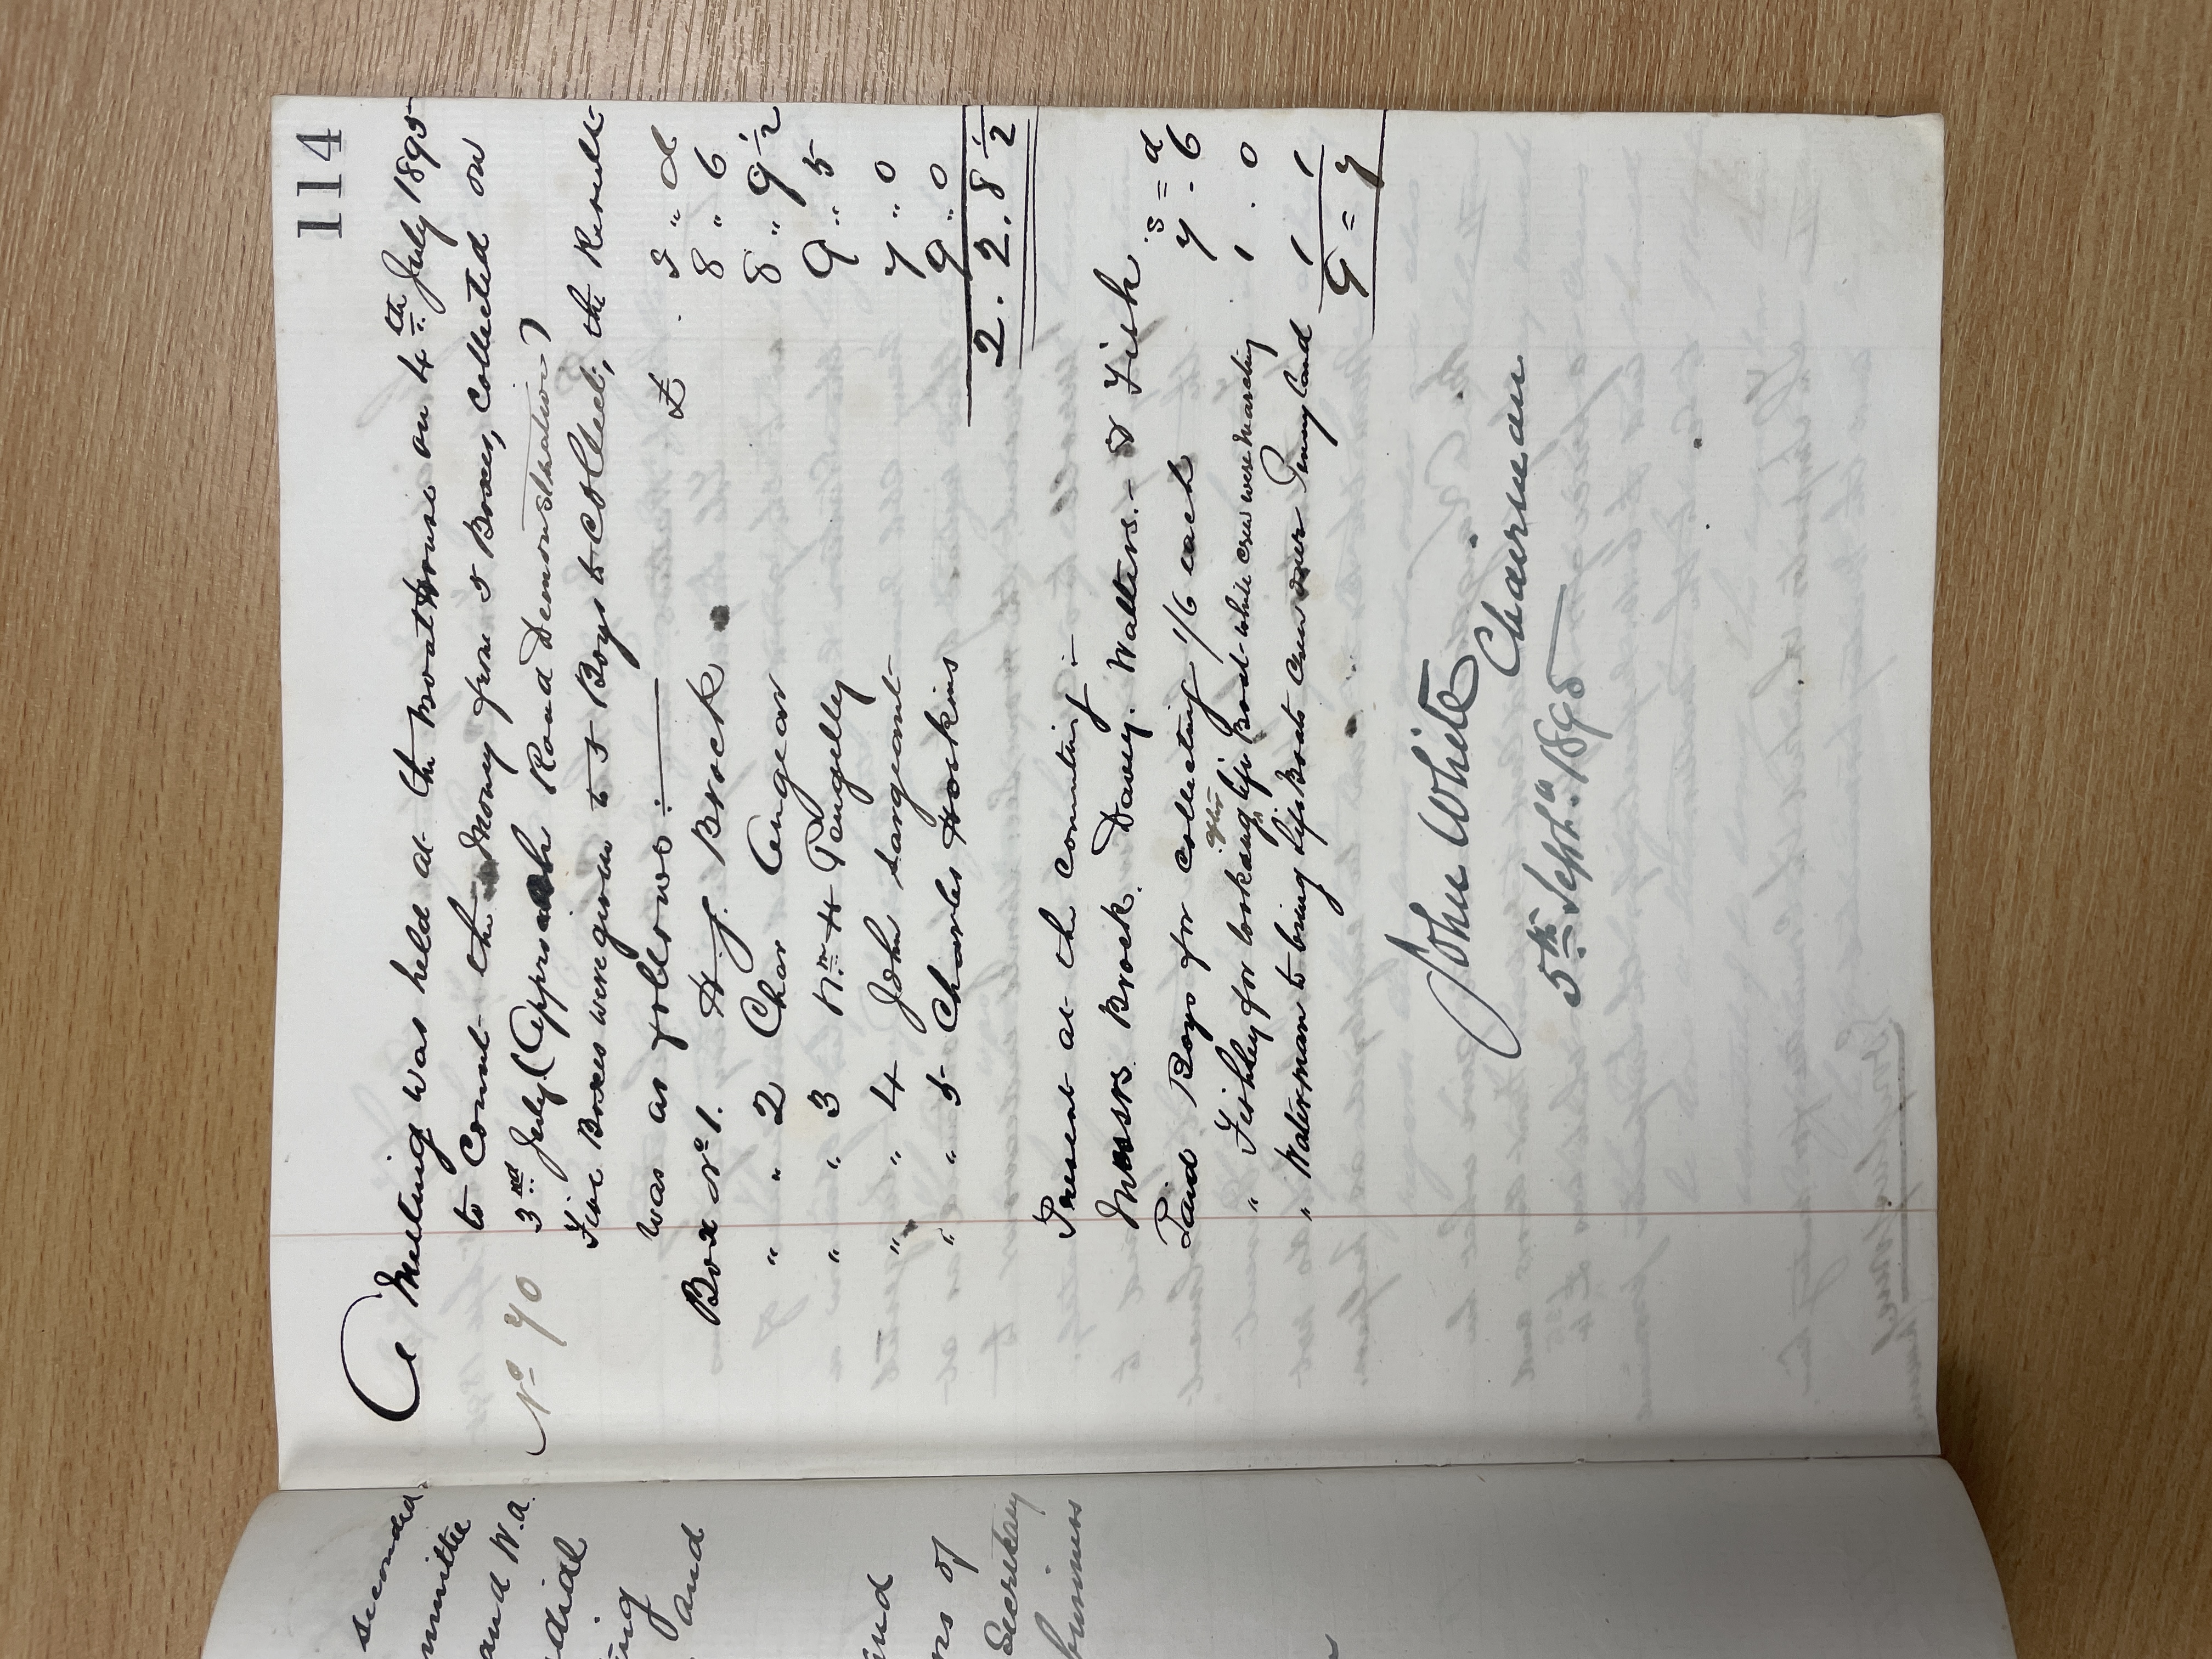 114
A Meeting was held at the Boat House on 4th July 1895
to Count the Money from 5 Boxes, collected on
No 70 3rd July (Approach Road Demonstration)
Five Boxes were given to 5 Boys to Collect, the Result
was as follows :—
£ . S " d
Box No 1. H. J. Brock 8 " 6
" " 2 Chas Angear 8 " 9 1/2
" " 3 Wm H Pengelly 9 " 5
" " 4 John Sargeant 7 " 0
" " 5 Charles Hockins 9 " 0
2 . 2 . 8 1/2
Present at the Counting :—
Messrs Brock. Davey. Walters. & Fish
s = d
Paid Boys for collecting 1/6 each 7 - 6
" Fishley for looking after life Boat while crew were Marching 1 . 0
" Waterman to bring life Boats Crew over Penny Land 1 1
9 = 7
John White Chairman
5th Septr. 1895
seconded
mmittee
and W.a.
dial
ing
and
and
ns of
Secretary
business